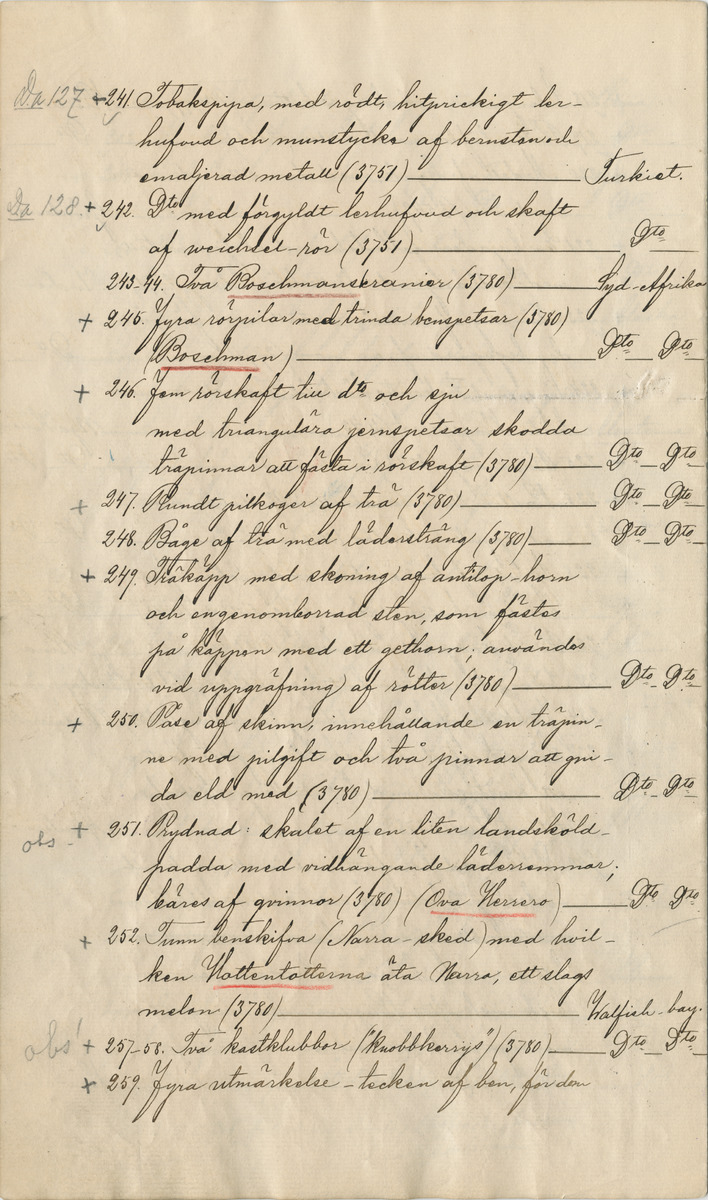 Da 127 + 241. Tobakspipa, med rödt, hitprickigt ler-
hufvud och munstycke af bernsten och
emaljerad metall (3751) Turkiet.
Da 128. + 242. Dto med förgyldt lerhufvud och skaft
af weichsel-rör (3751) Dto
243-44. Två Boschmanskranier (3780) Syd-Afrika
+ 245. Fyra rörpilar med trinda benspetsar (3780)
(Boschman) Dto Dto
+ 246. Fem rörskaft till dto och sju
med triangulära jernspetsar skodda
träpinnar att fästa i rörskaft (3780) Dto Dto
+ 247. Rundt pilkoger af trä (3780) Dto Dto
248. Båge af trä med lädersträng (3780) Dto Dto
+ 249. Träkäpp med skoning af antilop-horn
och en genomborrad sten, som fästes
på käppen med ett gethorn; användes
vid uppgräfning af rötter (3780) Dto Dto
+ 250. Påse af skinn, innehållande en träpin-
ne med pilgift och två pinnar att gni-
da eld med (3780) Dto Dto
obs + 251. Prydnad: skalet af en liten landsköld-
padda med vidhängande läderremmar;
bäres af qvinnor (3780) (Ova Herrero) Dto Dto
+ 252. Tunn benskifva (Narra-sked) med hvil-
ken Hottentotterna äta Narra, ett slags
melon (3780) Walfish-bay.
obs! + 257-58. Två kastklubbor ("knobbkerrys") (3780) Dto Dto
+ 259. Fyra utmärkelse-tecken af ben, för den